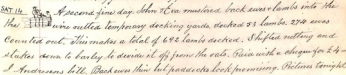 SAT 14 A second fine day. John & Era mustered back ewes & lambs into the
wire netting temporary docking yards, docked 53 lambs. 274 ewes
counted out. This makes a total of 692 lambs docked. Shifted netting and
stakes down to barley to divide it off from the oats. Paid with a cheque for £4-
J. Andersons bill. Back was thin but paddocks look promising. Pictures tonight.